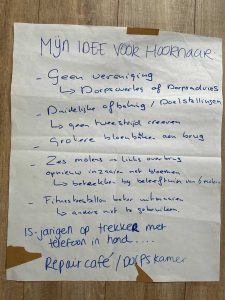 MIJN IDEE VOOR HOORNAAR
- Geen vereniging
↳ Dorpsoverleg of Dorpsadvies
- Duidelijke afbakning / Doelstellingen
↳ geen tweestrijd creeren
- Grotere bloembakken aan brug
- Zes molens links over brug
opnieuw inzaaien met bloemen
↳ betrekken bij beleeftuin van 6 molens
- Fitnesstoestellen beter
↳ anders niet te gebruiken
15-jarigen op trekker met
telefoon in hand.....
Repair café / Dorpskamer